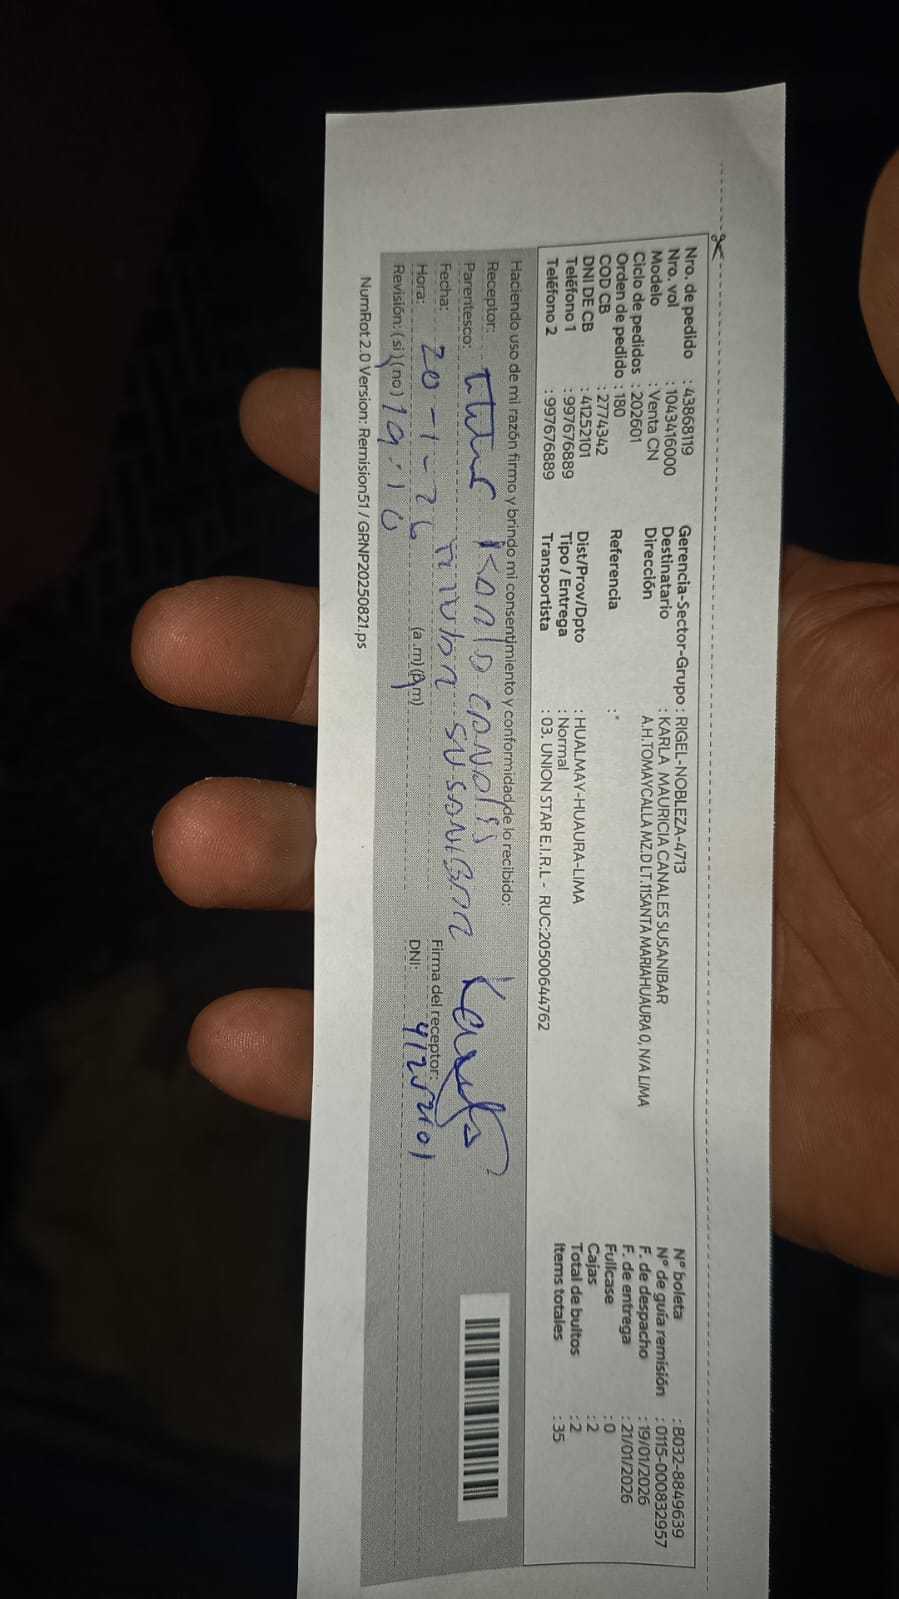 Nro. de pedido : 43868119
Nro. vol : 1043416000
Modelo : Venta CN
Ciclo de pedidos : 202601
Orden de pedido : 180
COD CB : 2774342
DNI DE CB : 41252101
Teléfono 1 : 997676889
Teléfono 2 : 997676889
Gerencia-Sector-Grupo : RIGEL-NOBLEZA-4713
Destinatario : KARLA MAURICIA CANALES SUSANIBAR
Dirección A.H.TOMAYCALLA MZ.D LT.11SANTA MARIAHUAURA 0, N/A LIMA
Referencia : *
Dist/Prov/Dpto : HUALMAY-HUAURA-LIMA
Tipo / Entrega : Normal
Transportista : 03. UNION STAR E.I.R.L - RUC:20500644762
N° boleta : B032-8849639
N° de guía remisión : 0115-000832957
F. de despacho : 19/01/2026
F. de entrega : 21/01/2026
Fullcase : 0
Cajas : 2
Total de bultos : 2
Items totales : 35
Haciendo uso de mi razón firmo y brindo mi consentimiento y conformidad de lo recibido:
Receptor: Karla Canales
Parentesco: titular Susanibar
Fecha: 20-1-26
Firma del receptor:
Hora: (a.m)(p.m)
DNI: 41252101
Revisión: (si)(no) 19:10
NumRot 2.0 Version: Remision51 / GRNP20250821.ps